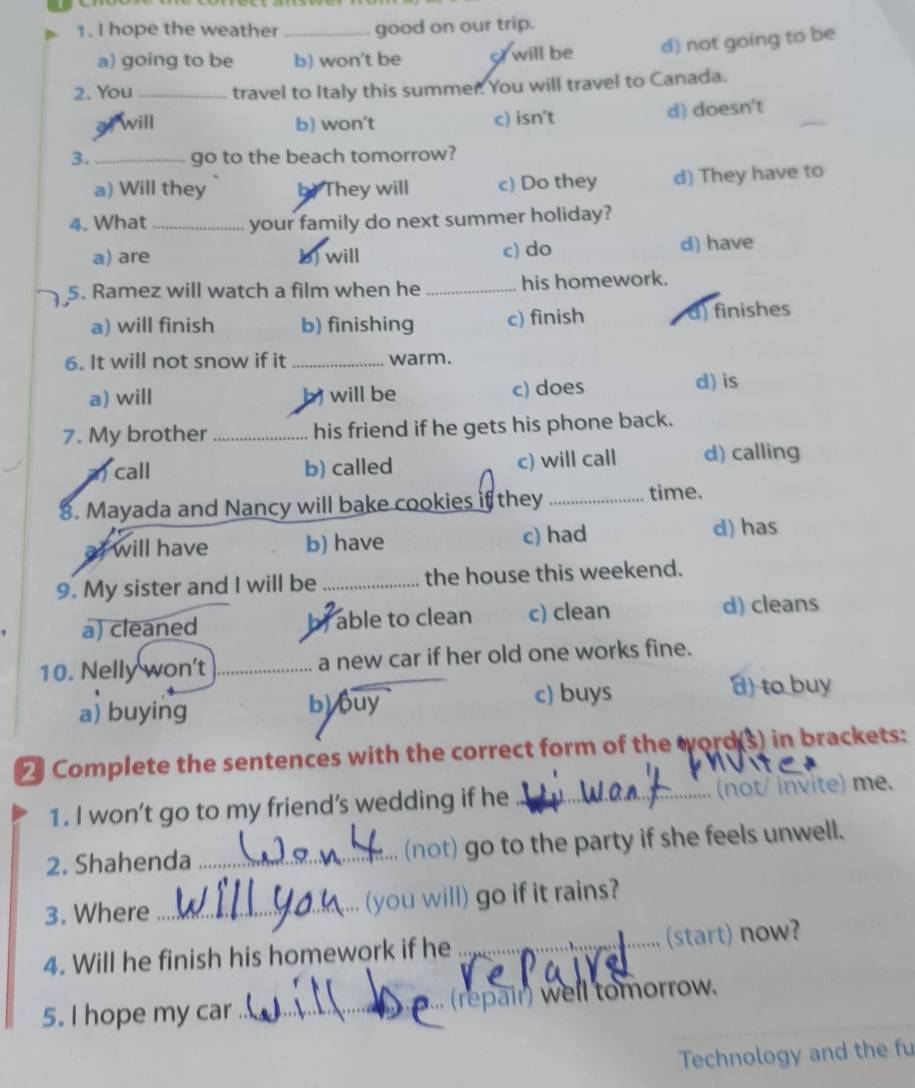 1. I hope the weather ............ good on our trip.
a) going to be b) won't be c) will be d) not going to be
2. You ............ travel to Italy this summer. You will travel to Canada.
a) will b) won't c) isn't d) doesn't
3. ............ go to the beach tomorrow?
a) Will they b) They will c) Do they d) They have to
4. What ............ your family do next summer holiday?
a) are b) will c) do d) have
5. Ramez will watch a film when he ............ his homework.
a) will finish b) finishing c) finish d) finishes
6. It will not snow if it ............ warm.
a) will b) will be c) does d) is
7. My brother ............ his friend if he gets his phone back.
a) call b) called c) will call d) calling
8. Mayada and Nancy will bake cookies if they ............ time.
a) will have b) have c) had d) has
9. My sister and I will be ............ the house this weekend.
a) cleaned b) able to clean c) clean d) cleans
10. Nelly won't ............ a new car if her old one works fine.
a) buying b) buy c) buys d) to buy
2 Complete the sentences with the correct form of the word(s) in brackets:
1. I won't go to my friend's wedding if he won't invite (not/ invite) me.
2. Shahenda won't (not) go to the party if she feels unwell.
3. Where will you (you will) go if it rains?
4. Will he finish his homework if he ............ (start) now?
5. I hope my car will be repaired (repair) well tomorrow.
Technology and the fu